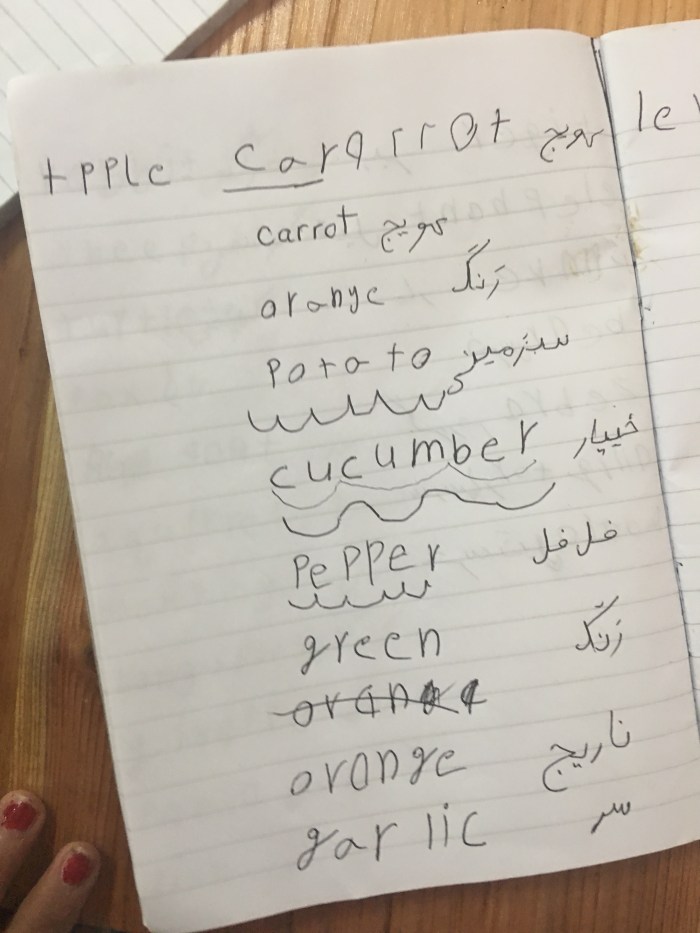 tPPLe carqrrot سویج
carrot سویج
orange رنگ
Potato سبزمین
cucumber خییار
PePPer فلفل
green رنگ
orange ناریج
garlic سر
le